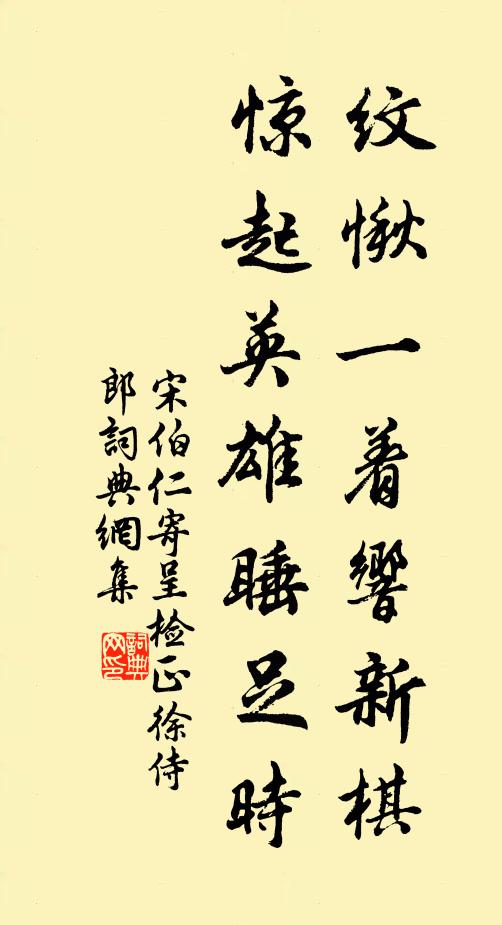 纹愀一着響新棋
惊起英雄睡足時
宋伯仁寄呈检正徐侍
郎詞典網集
詞典网印